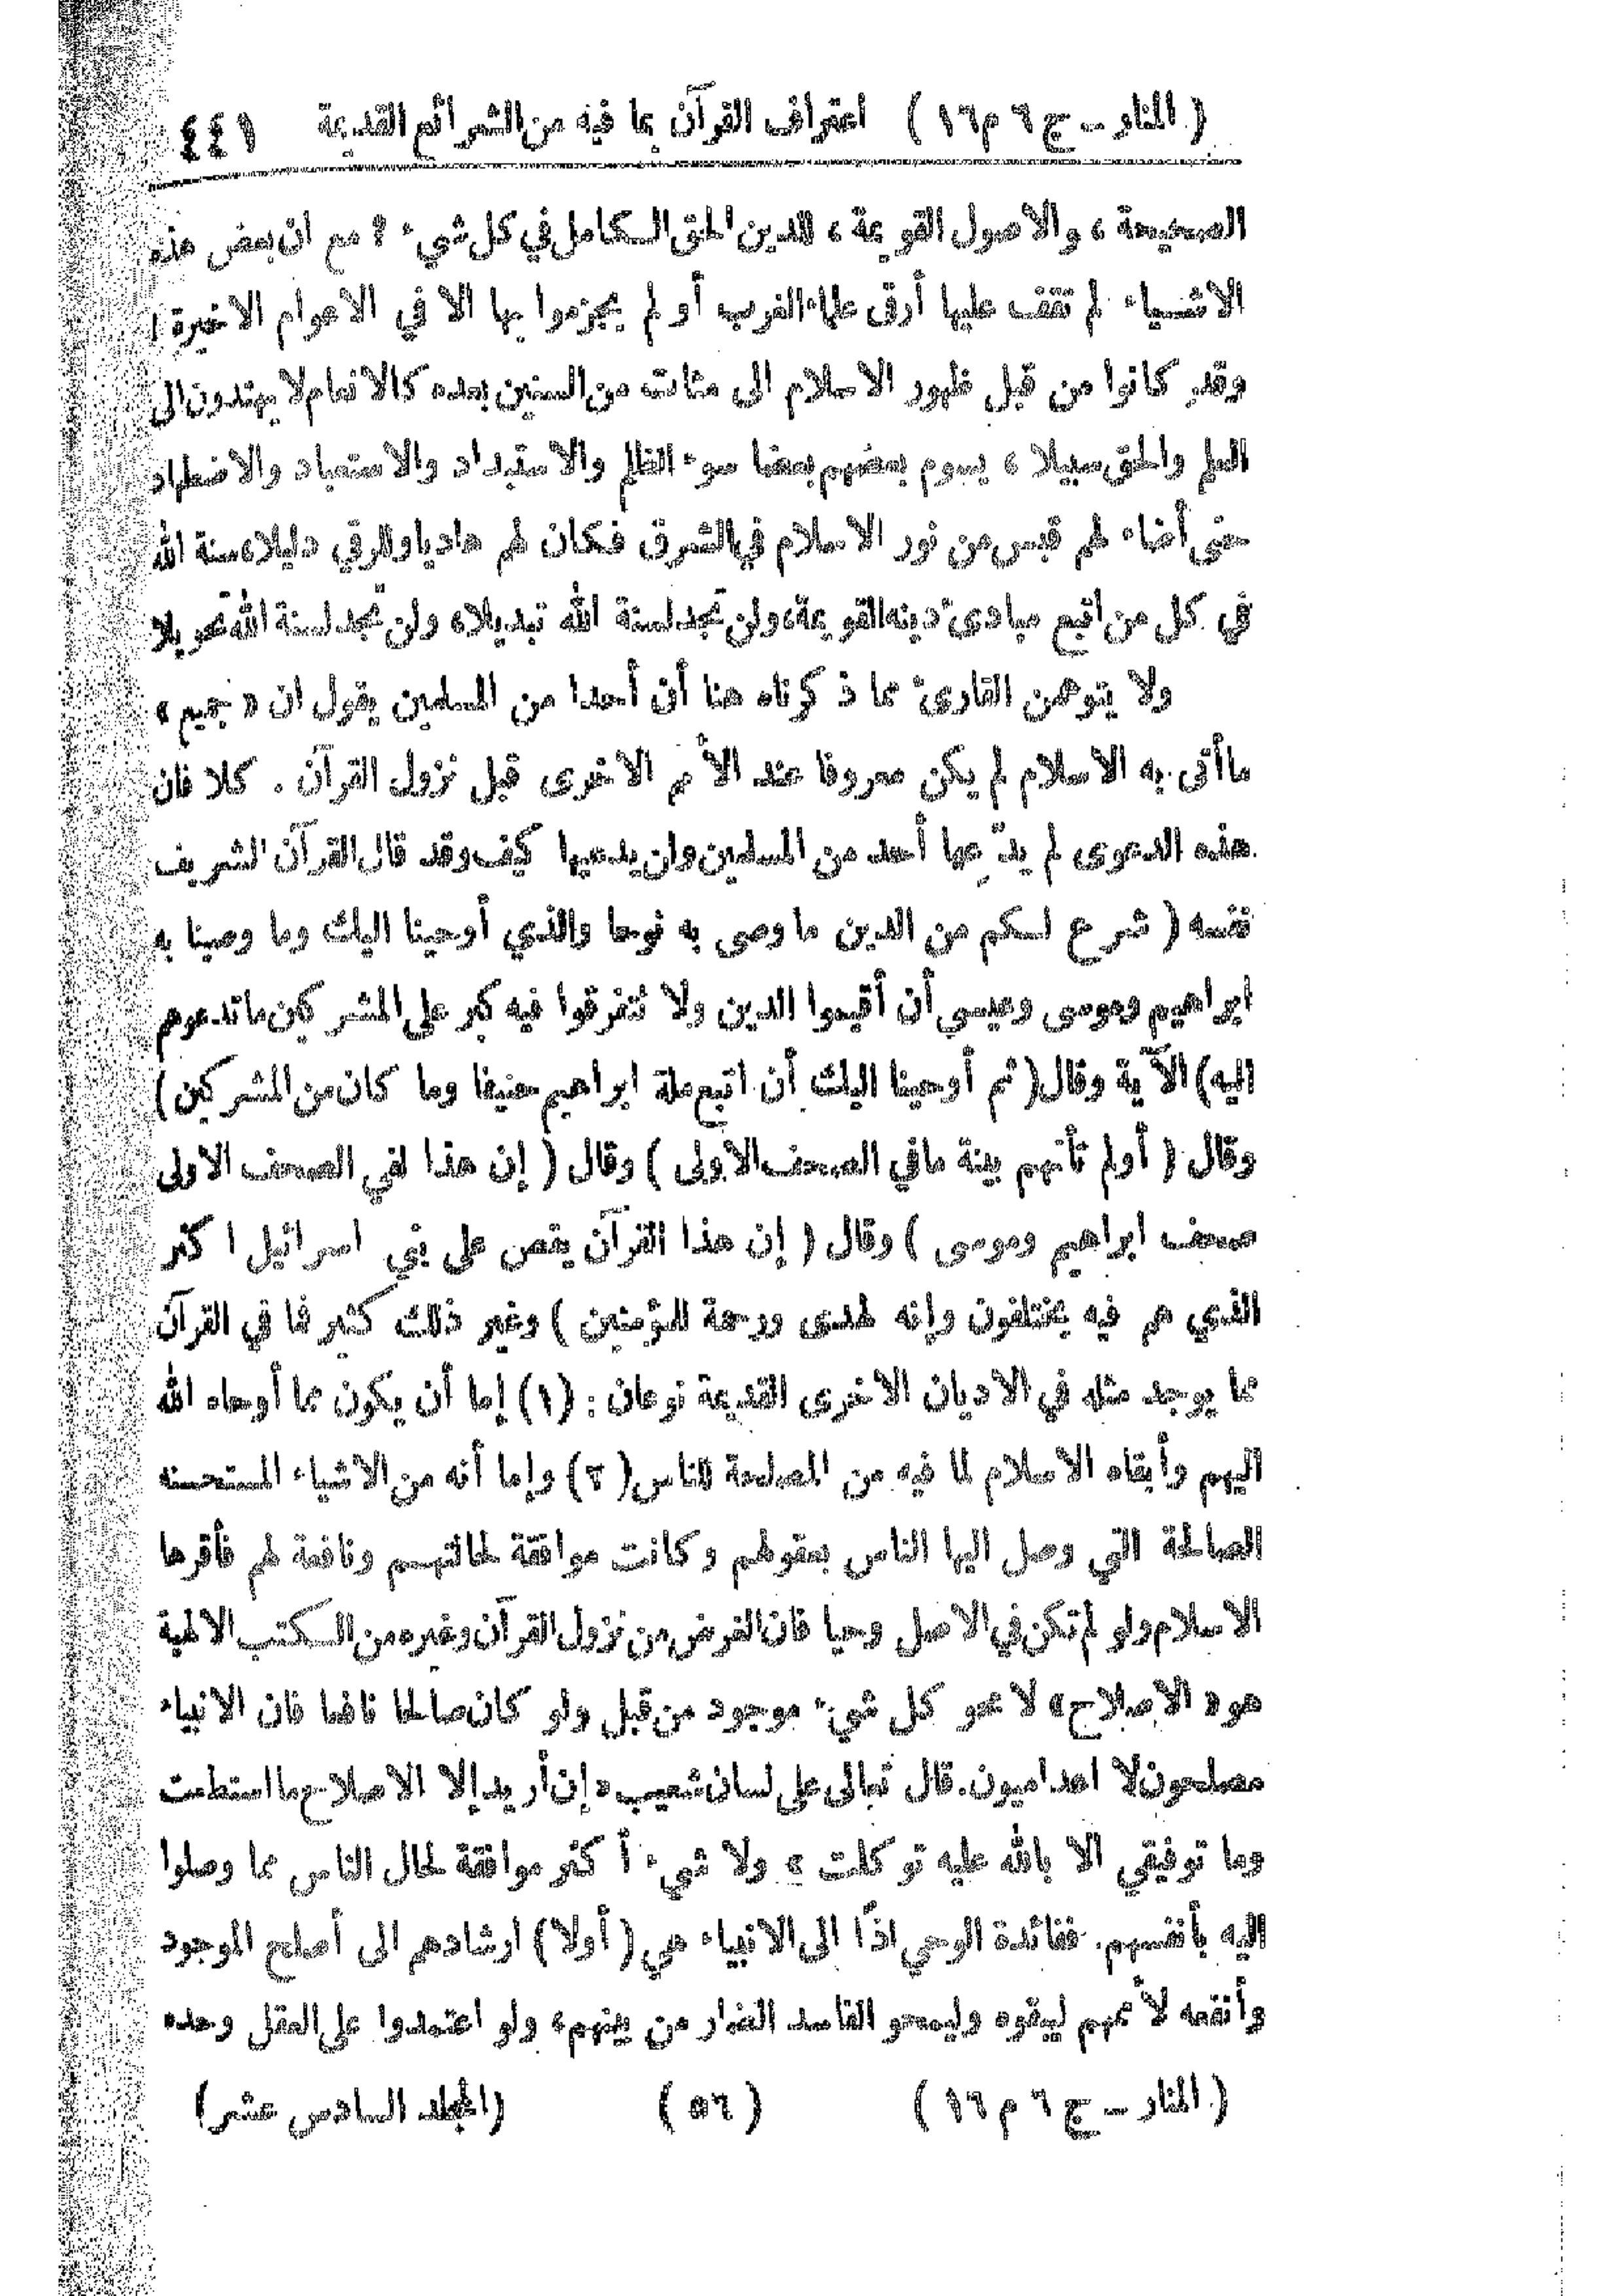 (المنار ـ ج ٦ م ١٦) اعتراف القرآن بما فيه من الشرائع القديمة ٤٤١
الصحيحة ، والاصول القويمة ، للدين الحق الكامل في كل شيء ؟ مع ان بعض هذه
الاشياء لم تقف عليها أرقى علماء الغرب أو لم يجزموا بها الا في الاعوام الاخيرة !
وقد كانوا من قبل ظهور الاسلام الى مئات من السنين بعده كالانعام لا يهتدون الى
العلم والحق سبيلا ، يسوم بعضهم بعضا سوء الظلم والاستبداد والاستعباد والاضطهاد
حتى أضاء لهم قبس من نور الاسلام في الشرق فكان لهم هاديا وللرقي دليلا، سنة الله
في كل من اتبع مبادئ دينه القويمة، ولن تجد لسنة الله تبديلا، ولن تجد لسنة الله تحويلا
ولا يتوهمن القارئ مما ذكرناه هنا أن أحدا من المسلمين يقول ان « جميع »
ما أتى به الاسلام لم يكن معروفا عند الأمم الاخرى قبل نزول القرآن . كلا فان
هذه الدعوى لم يدّعها أحد من المسلمين ولن يدعيها كيف وقد قال القرآن الشريف
نفسه ( شرع لكم من الدين ما وصى به نوحا والذي أوحينا اليك وما وصينا به
ابراهيم وموسى وعيسى أن أقيموا الدين ولا تتفرقوا فيه كبر على المشركين ما تدعوهم
اليه) الآية وقال( ثم أوحينا اليك أن اتبع ملة ابراهيم حنيفا وما كان من المشركين )
وقال ( أولم تأتهم بينة مافي الصحف الأولى ) وقال ( إن هذا لفي الصحف الاولى
صحف ابراهيم وموسى ) وقال ( إن هذا القرآن يقص على بني اسرائيل اكثر
الذي هم فيه يختلفون وإنه لهدى ورحمة للمؤمنين ) وغير ذلك كثير فما في القرآن
مما يوجد مثله في الاديان الاخرى القديمة نوعان : (١) إما أن يكون مما أوحاه الله
اليهم وأبقاه الاسلام لما فيه من المصلحة للناس (٢) وإما أنه من الاشياء المستحسنه
الصالحة التي وصل اليها الناس بعقولهم وكانت موافقة لحالتهم ونافعة لهم فأقرها
الاسلام ولو لم تكن في الاصل وحيا فان الغرض من نزول القرآن وغيره من الكتب الالهية
هو « الاصلاح » لا محو كل شيء موجود من قبل ولو كان صالحا نافعا فان الانبياء
مصلحون لا اعداميون. قال تعالى على لسان شعيب « إن أريد إلا الاصلاح ما استطعت
وما توفيقي الا بالله عليه توكلت » ولا شيء أكثر موافقة لحال الناس مما وصلوا
اليه بأنفسهم. ففائدة الوحي اذًا الى الانبياء هي ( أولا ) ارشادهم الى أصلح الموجود
وأنفعه لأممهم ليبقوه وليمحو الفاسد الضار من بينهم، ولو اعتمدوا على العقل وحده
(المنار ـ ج ٦ م ١٦) (٥٦) (المجلد السادس عشر)